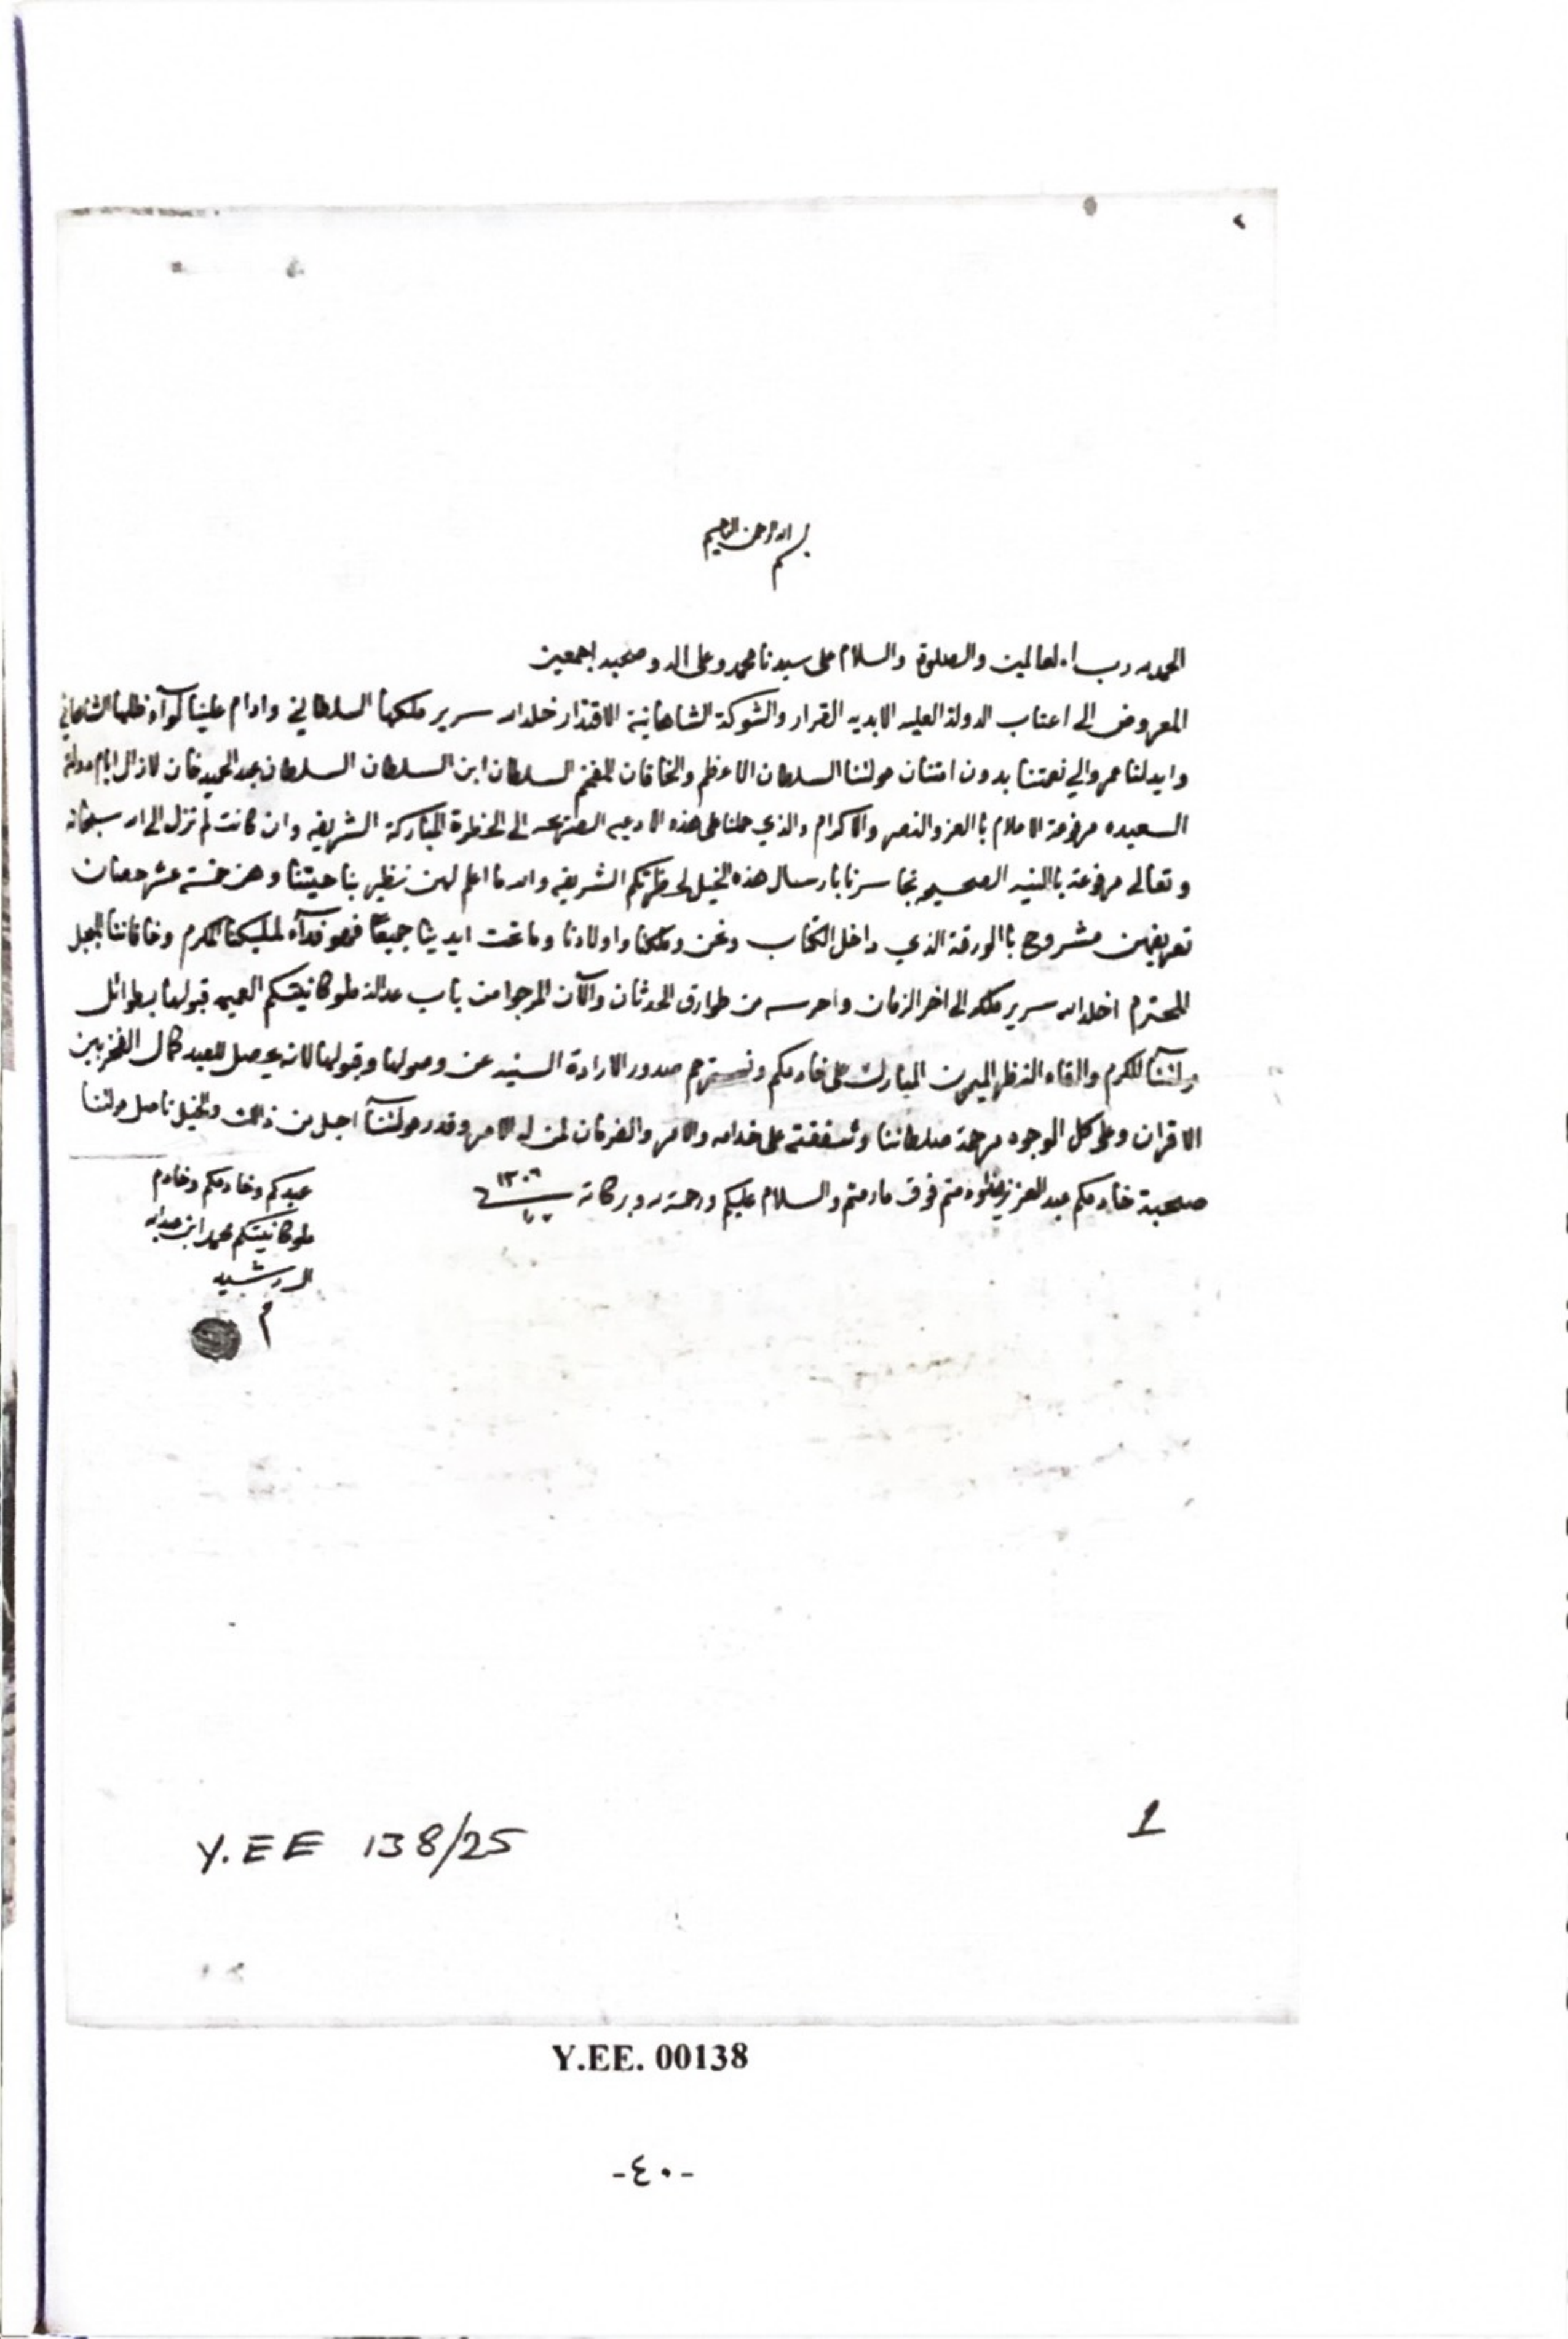 بسم الله الرحمن الرحيم
الحمد لله رب العالمين والصلوة والسلام على سيدنا محمد وعلى اله وصحبه اجمعين
المعروض الى اعتاب الدولة العليه الابديه القرار والشوكة الشاهانية الاقتدار خلد الله سرير ملكها السلطاني وادام علينا لوآء ظلها الشاهاني
وايد لنا عمر والي نعمتنا بدون امتنان مولتنا السلطان الاعظم والخاقان المفخم السلطان ابن السلطان السلطان عبد الحميد خان لا زال ايام دولته
السعيده مرفوعة الاعلام باالعز والنصر والاكرام والذي حملنا على هذه الادعيه الى الحظرة المباركة الشريفه وان كانت لم تزل الى الله سبحانه
وتعالى مرفوعة باالنيه الصحيحه نجاسرنا بارسال هذه الخيل لحظرتكم الشريفه والله ما اعلم لهن نظير بناحيتنا وهن خمسة عشر حصان
تعريفهن مشروح باالورقة الذي داخل الكتاب ونحن وملكنا واولادنا وما تحت ايدينا جميعًا فهو فدآء لمليكنا المكرم وخاقاننا المبجل
المحترم اخلد الله سرير ملكه الى اخر الزمان واحرسه من طوارق الحدثان والآن المرجوا من باب عدالة ملوكانيتكم العميمه قبولها بطوائل
المكرم والقاء النظر الميمون المبارك على خادمكم ونسترحم صدور الارادة السنيه عن وصولها وقبولها لانه يحصل للعبد كمال الفخر بين
الاقران وعلى كل الوجوه مرحمة سلطاننا وشفقته على خدامه والامر والفرمان لمن له الامر وقدر مولتنآ اجل من ذالك والخيل تاصل مولتنا
صحبة خادمكم عبد العزيز دمتم فوق ما رمتم والسلام عليكم ورحمة الله وبركاته ١٣٠٦
عبدكم وخادمكم وخادم
ملوكانيتكم محمد ابن عبدالله
الرشيد
م
Y.EE 138/25
1
Y.EE. 00138
-٤٠-